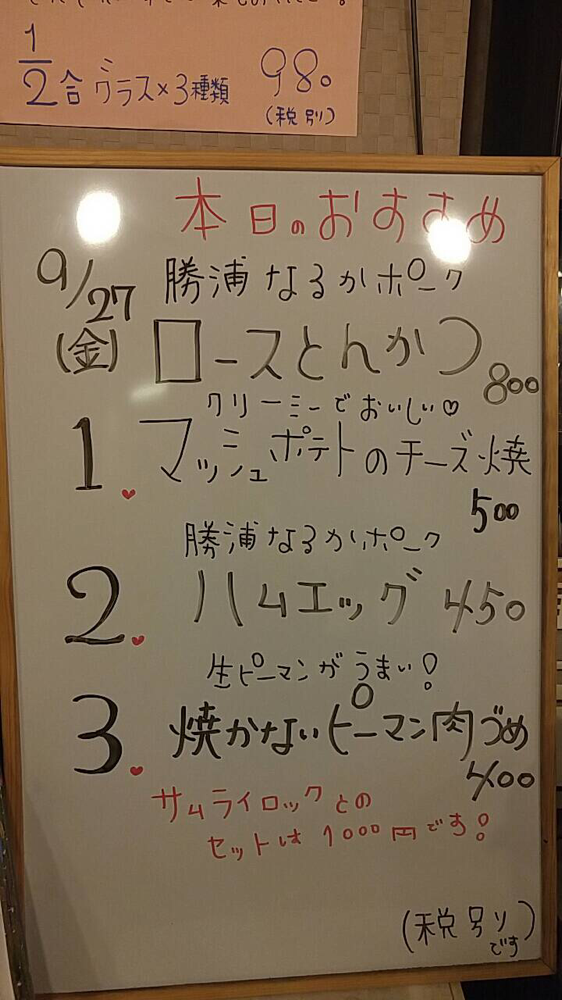 1/2合 グラス×3種類 980
(税別)
本日のおすすめ
9/27 勝浦なるかポーク
(金) ロースとんかつ 800
クリーミーでおいしい♡
1. マッシュポテトのチーズ焼
500
勝浦なるかポーク
2. ハムエッグ 450
生ピーマンがうまい!
3. 焼かないピーマン肉づめ
400
サムライロックとの
セットは1000円です!
(税別)
です